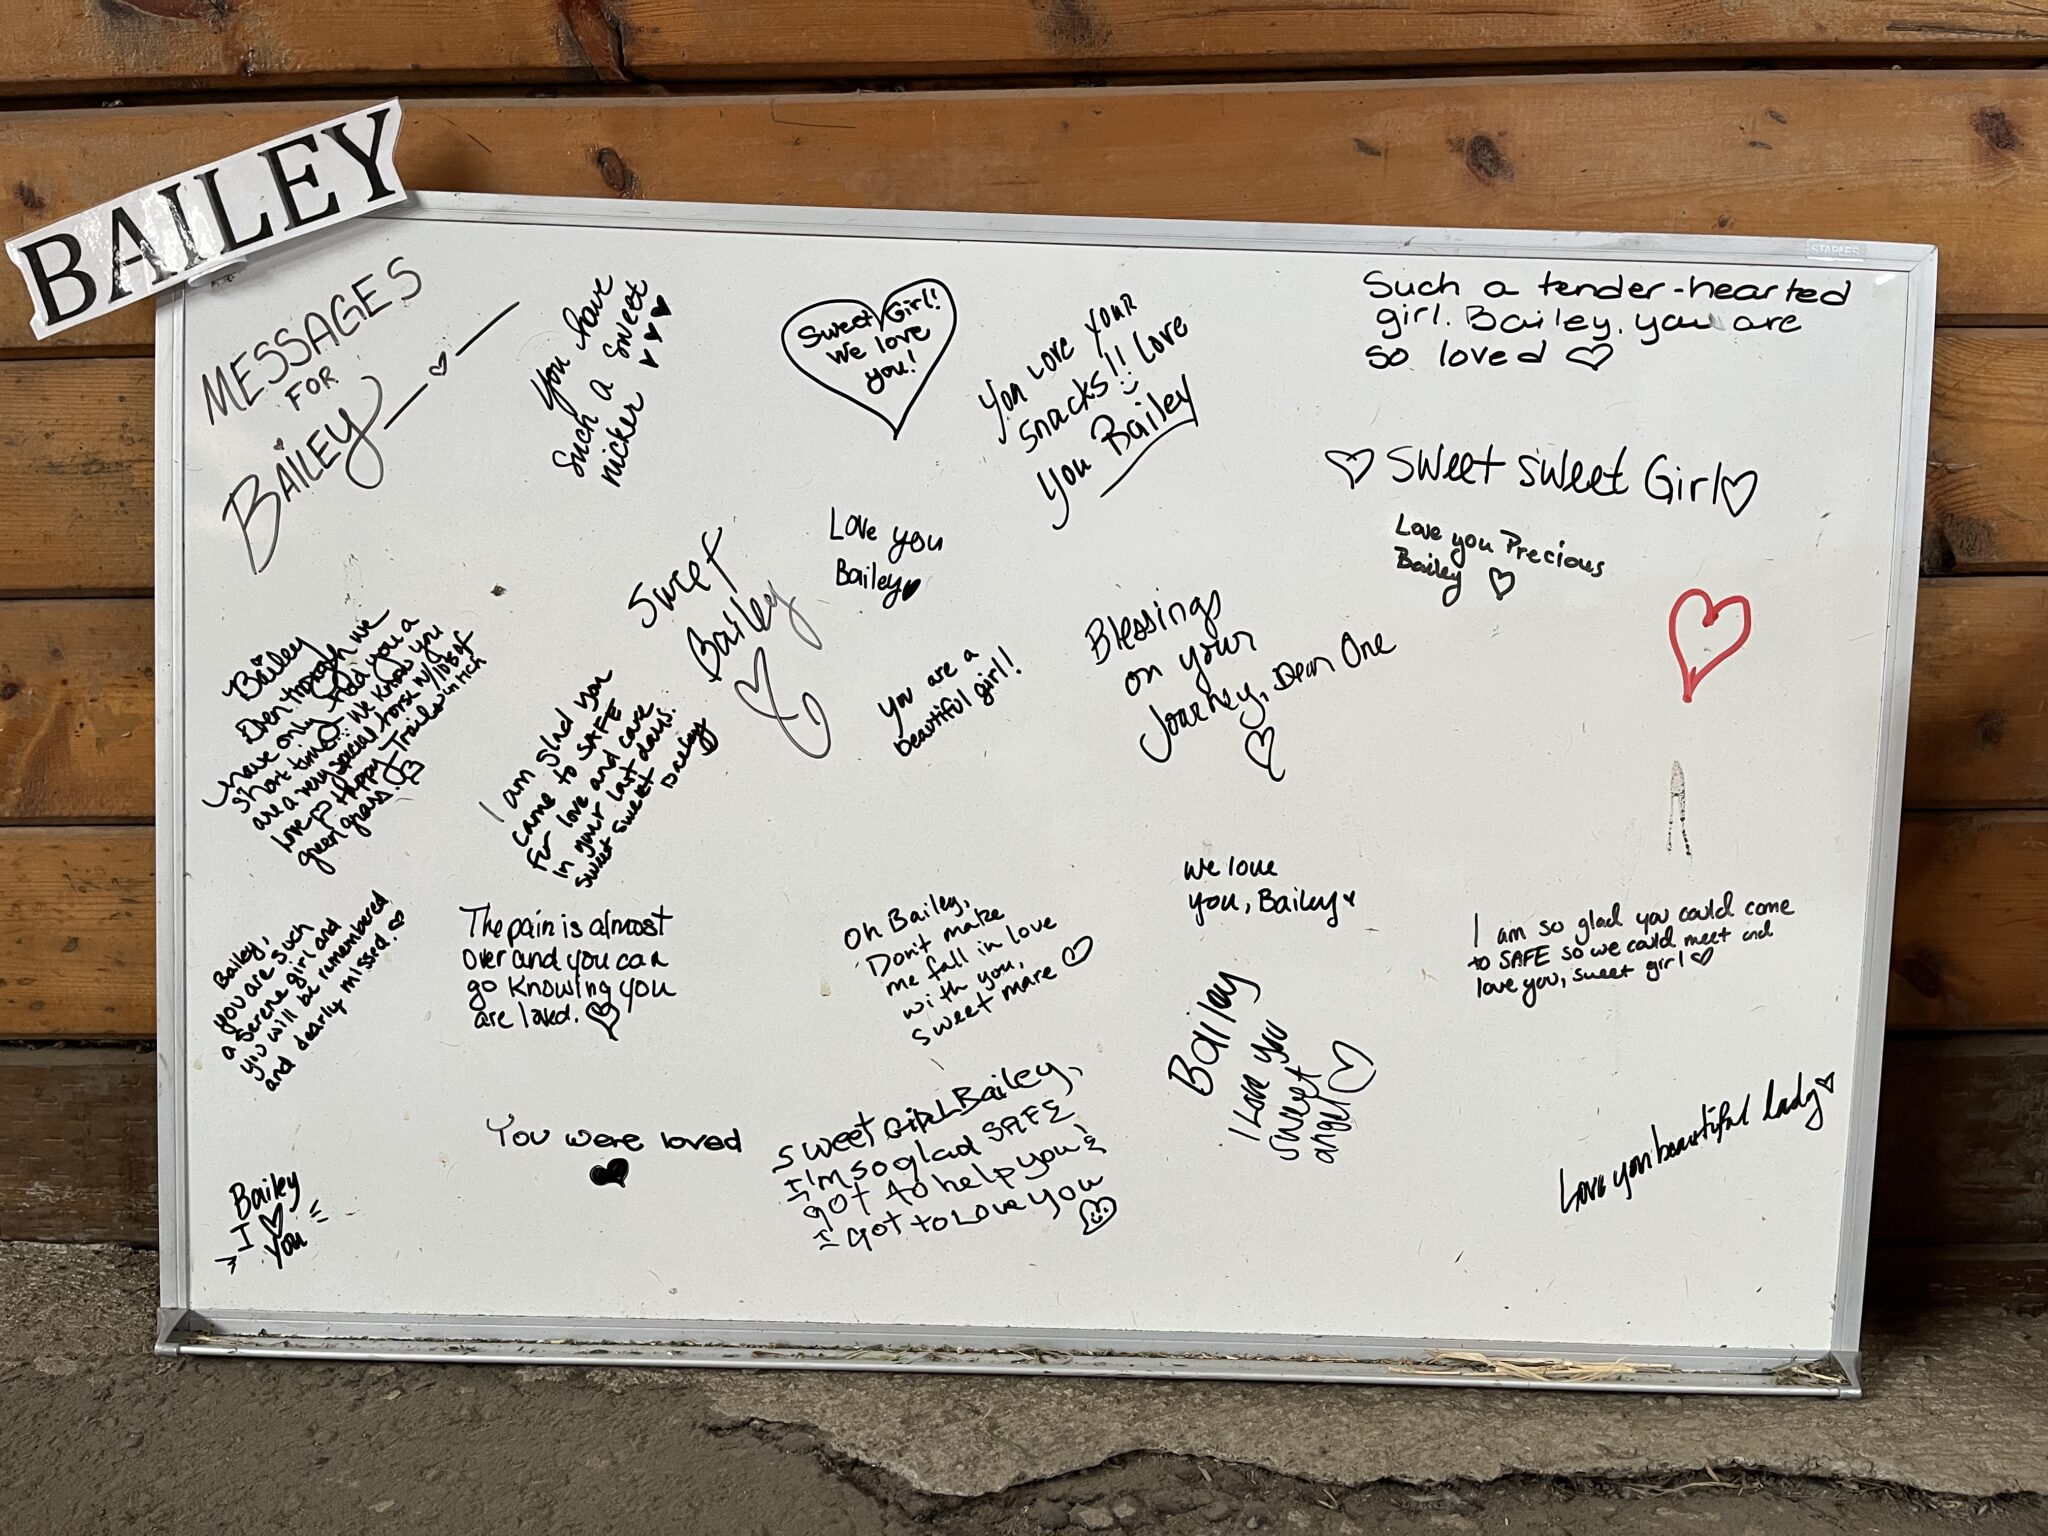 BAILEY
STAPLES
MESSAGES
FOR
BAILEY
You have
such a sweet
nicker
Sweet Girl!
We love
you!
You Love your
snacks!! Love
you Bailey
Such a tender-hearted
girl. Bailey, you are
so loved
Sweet sweet Girl
Love you Precious
Bailey
Love you
Bailey
Sweet
Bailey
Blessings
on your
Journey, Dear One
you are a
beautiful girl!
Bailey
Even though we
have only had you a
short time... we know you
are a very special horse w/lots of
love Happy Trails in rich
green grass.
I am glad you
came to SAFE
for love and care
in your last days.
sweet sweet Bailey
we love
you, Bailey
Bailey,
you are such
a serene girl and
you will be remembered
and dearly missed.
The pain is almost
over and you can
go knowing you
are loved.
Oh Bailey,
Don't make
me fall in love
with you,
sweet mare
I am so glad you could come
to SAFE so we could meet and
love you, sweet girl
Bailey
I Love you
sweet
angel
You were loved
sweet GIRL Bailey,
I'm so glad SAFE
got to help you &
I got to Love you
Love you beautiful lady
Bailey
I
you